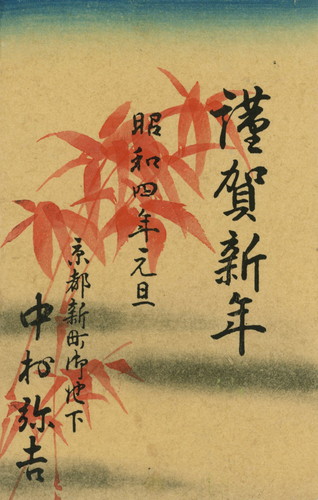 謹賀新年
昭和四年元旦
京都新町御池下
中村弥吉